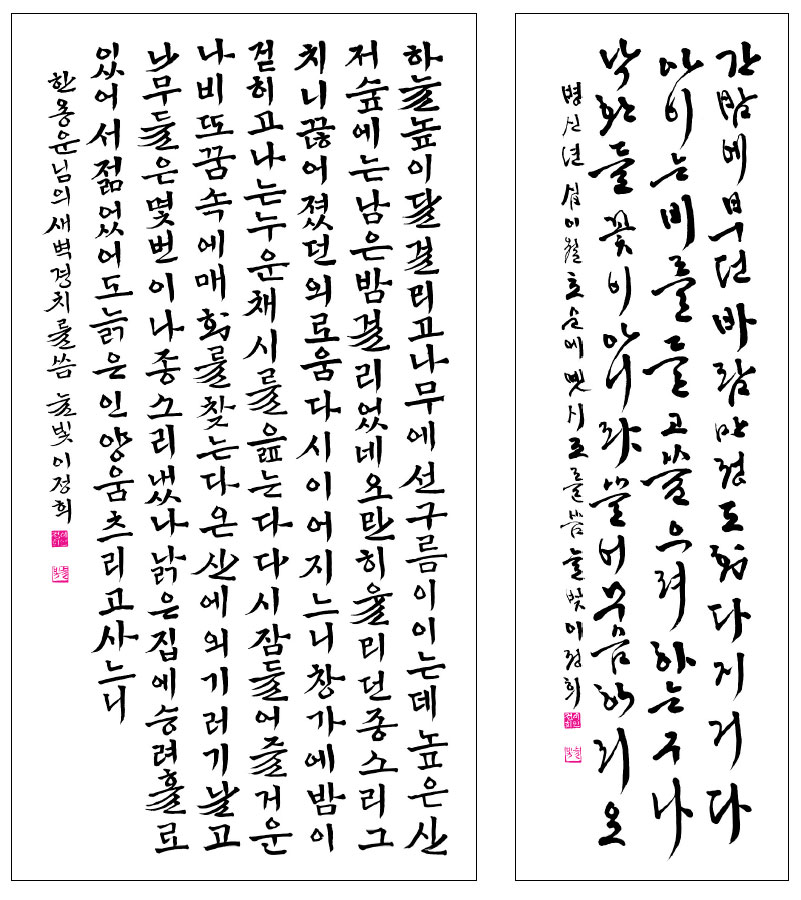 간밤에부던바람만정도화다지거다
아이는비를들고쓸으려하는구나
낙화들꽃이아니랴쓸어무슴하리오
병신년십이월효소에옛시조를씀늘빛이정희
하늘높이달걸리고나무에선구름이이는데높은산
저숲에는남은밤걸리었네오만히울리던종소리그
치니끊어졌던외로움다시이어지느니창가에밤이
걷히고나는누운채시를읊는다다시잠들어즐거운
나비또꿈속에매화를찾는다온산에외기러기날고
나무들은몇번이나종소리냈나낡은집에승려홀로
있어서젊었어도늙은인양움츠리고사느니
한용운님의새벽경치를씀 늘빛이정희